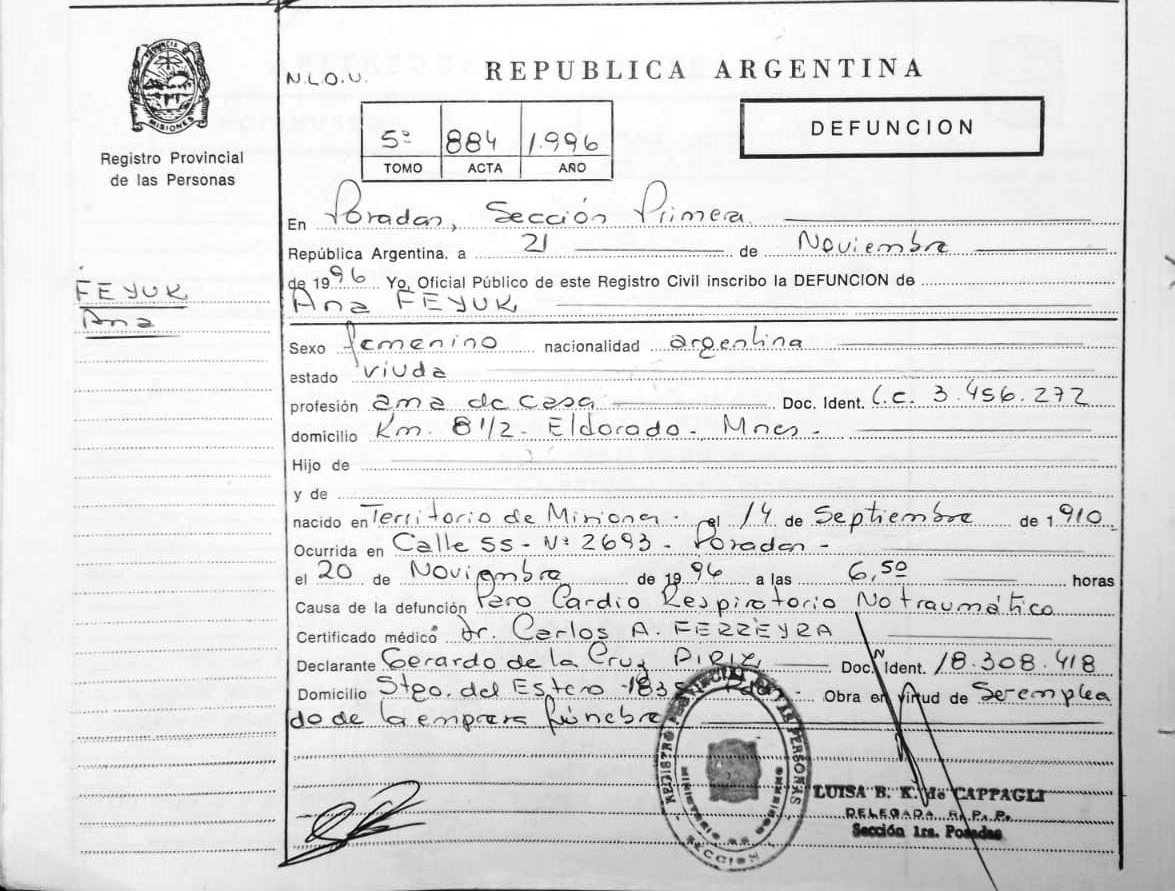 PROVINCIA DE
MISIONES
Registro Provincial
de las Personas
FEYUK
Ana
N.L.O.U.
REPUBLICA ARGENTINA
5º 884 1.996
TOMO ACTA AÑO
DEFUNCION
En Posadas, Sección Primera
República Argentina, a 21 de Noviembre
de 1996 Yo, Oficial Público de este Registro Civil inscribo la DEFUNCION de
Ana FEYUK
Sexo femenino nacionalidad argentina
estado viuda
profesión ama de casa Doc. Ident. L.C. 3.456.272
domicilio Km. 8 1/2 - Eldorado - Mnes -
Hijo de
y de
nacido en Territorio de Misiones - el 14 de Septiembre de 1910
Ocurrida en Calle 55 - Nº 2693 - Posadas -
el 20 de Noviembre de 1996 a las 6,50 horas
Causa de la defunción Paro Cardio Respiratorio No traumático
Certificado médico Dr. Carlos A. FERREYRA
Declarante Gerardo de la Cruz Doc. Ident. 18.308.418
Domicilio Stgo. del Estero 1835 Obra en virtud de Ser emplea
do de la empresa fúnebre
REGISTRO PROVINCIAL DE LAS PERSONAS
MINISTERIO DE GOBIERNO
SECCION 1
LUISA B. K. de CAPPAGLI
DELEGADA R. P. P.
Sección 1ra. Posadas